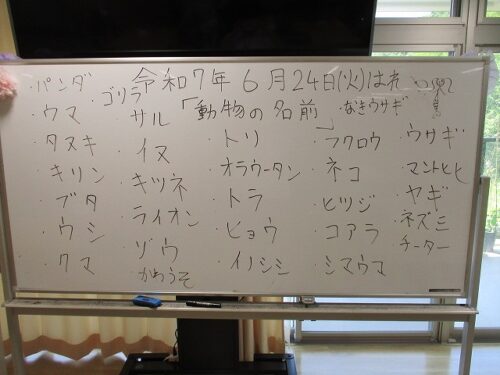 令和7年 6月24日(火)はれ
「動物の名前」
・パンダ
・ウマ
・タヌキ
・キリン
・ブタ
・ウシ
・クマ
・ゴリラ
・サル
・イヌ
・キツネ
・ライオン
・ゾウ
・かわうそ
・トリ
・オラウータン
・トラ
・ヒョウ
・イノシシ
・なきウサギ
・フクロウ
・ネコ
・ヒツジ
・コアラ
・シマウマ
・ウサギ
・マントヒヒ
・ヤギ
・ネズミ
・チーター